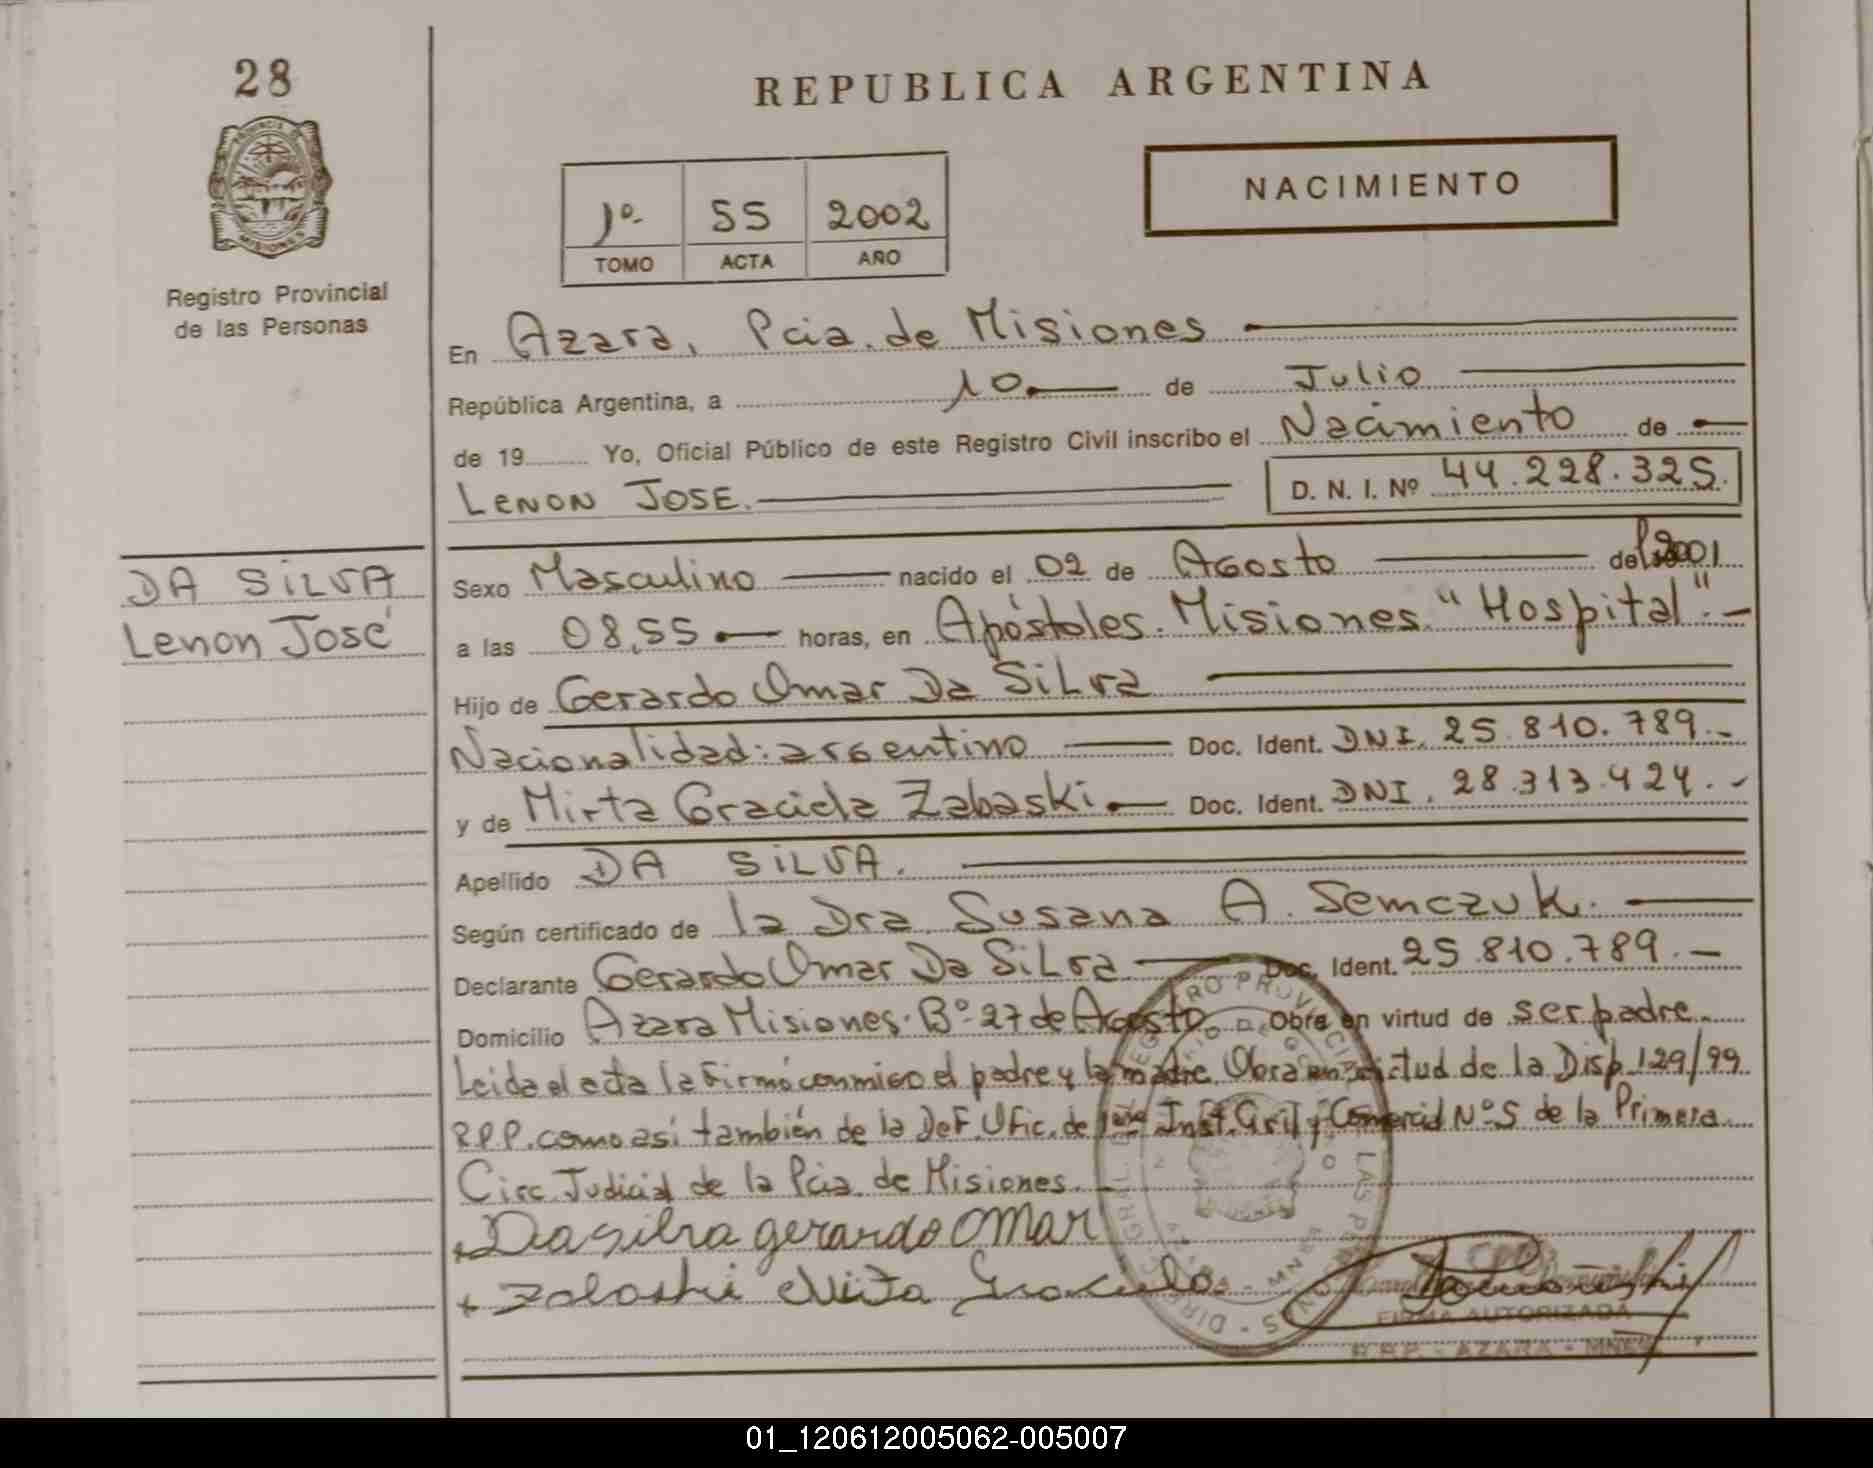 28
REPUBLICA ARGENTINA
NACIMIENTO
1º 55 2002
TOMO ACTA AÑO
PROVINCIA DE
MISIONES
Registro Provincial
de las Personas
En Azara, Pcia. de Misiones
República Argentina, a 10 de Julio
de 19 Yo, Oficial Público de este Registro Civil inscribo el Nacimiento de
LENON JOSE. D. N. I. Nº 44.228.325.
DA SILVA
Lenon José
Sexo Masculino nacido el 02 de Agosto del 2001
a las 08,55 horas, en Apóstoles. Misiones. "Hospital".-
Hijo de Gerardo Omar Da Silva
Nacionalidad: argentino Doc. Ident. DNI. 25.810.789.-
y de Mirta Graciela Zabaski. Doc. Ident. DNI. 28.313.424.-
Apellido DA SILVA.
Según certificado de la Dra. Susana A. Semczuk.
Declarante Gerardo Omar Da Silva Doc. Ident. 25.810.789.-
Domicilio Azara Misiones. Bº 27 de Agosto Obra en virtud de ser padre.
Leida el acta la firmó conmigo el padre y la madre. Obra en virtud de la Disp. 129/99
R.P.P. como asi también de la Def. Ofic. de 1era Inst. Civil y Comercial Nº 5 de la Primera
Circ. Judicial de la Pcia. de Misiones.
Da silva gerardo OMAR
Zabaski Mirta Graciela
FIRMA AUTORIZADA
R.P.P. - AZARA - MNES
01_120612005062-005007